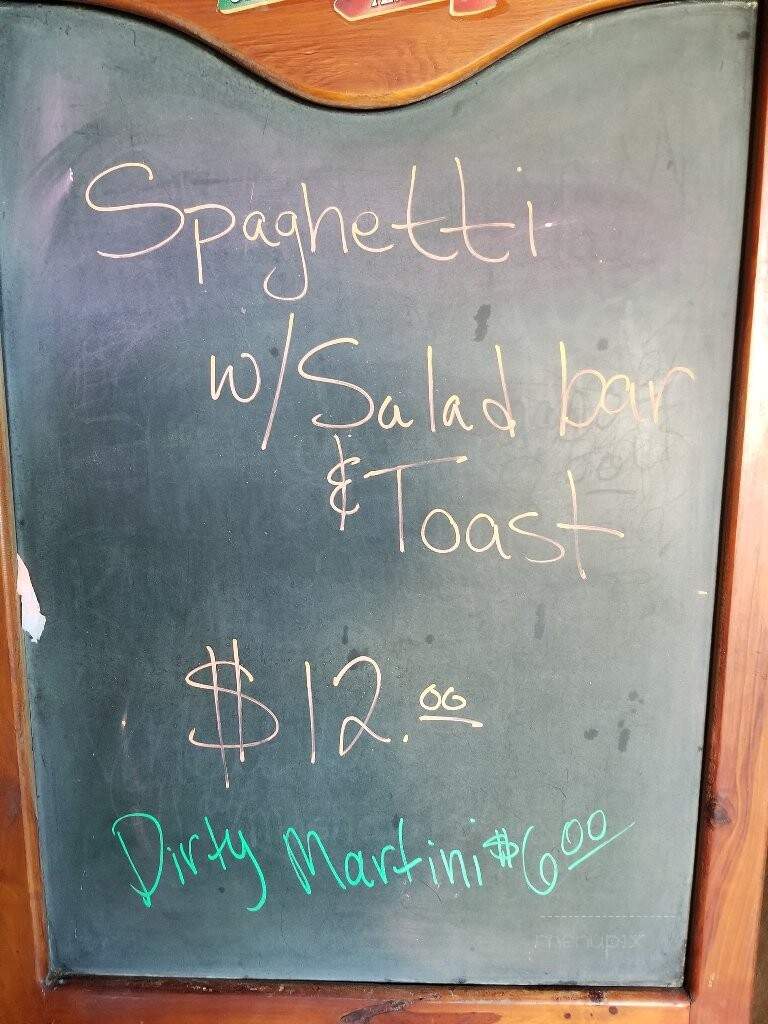 Spaghetti
w/Salad bar
& Toast
$12.00
Dirty Martini $6.00
menupix